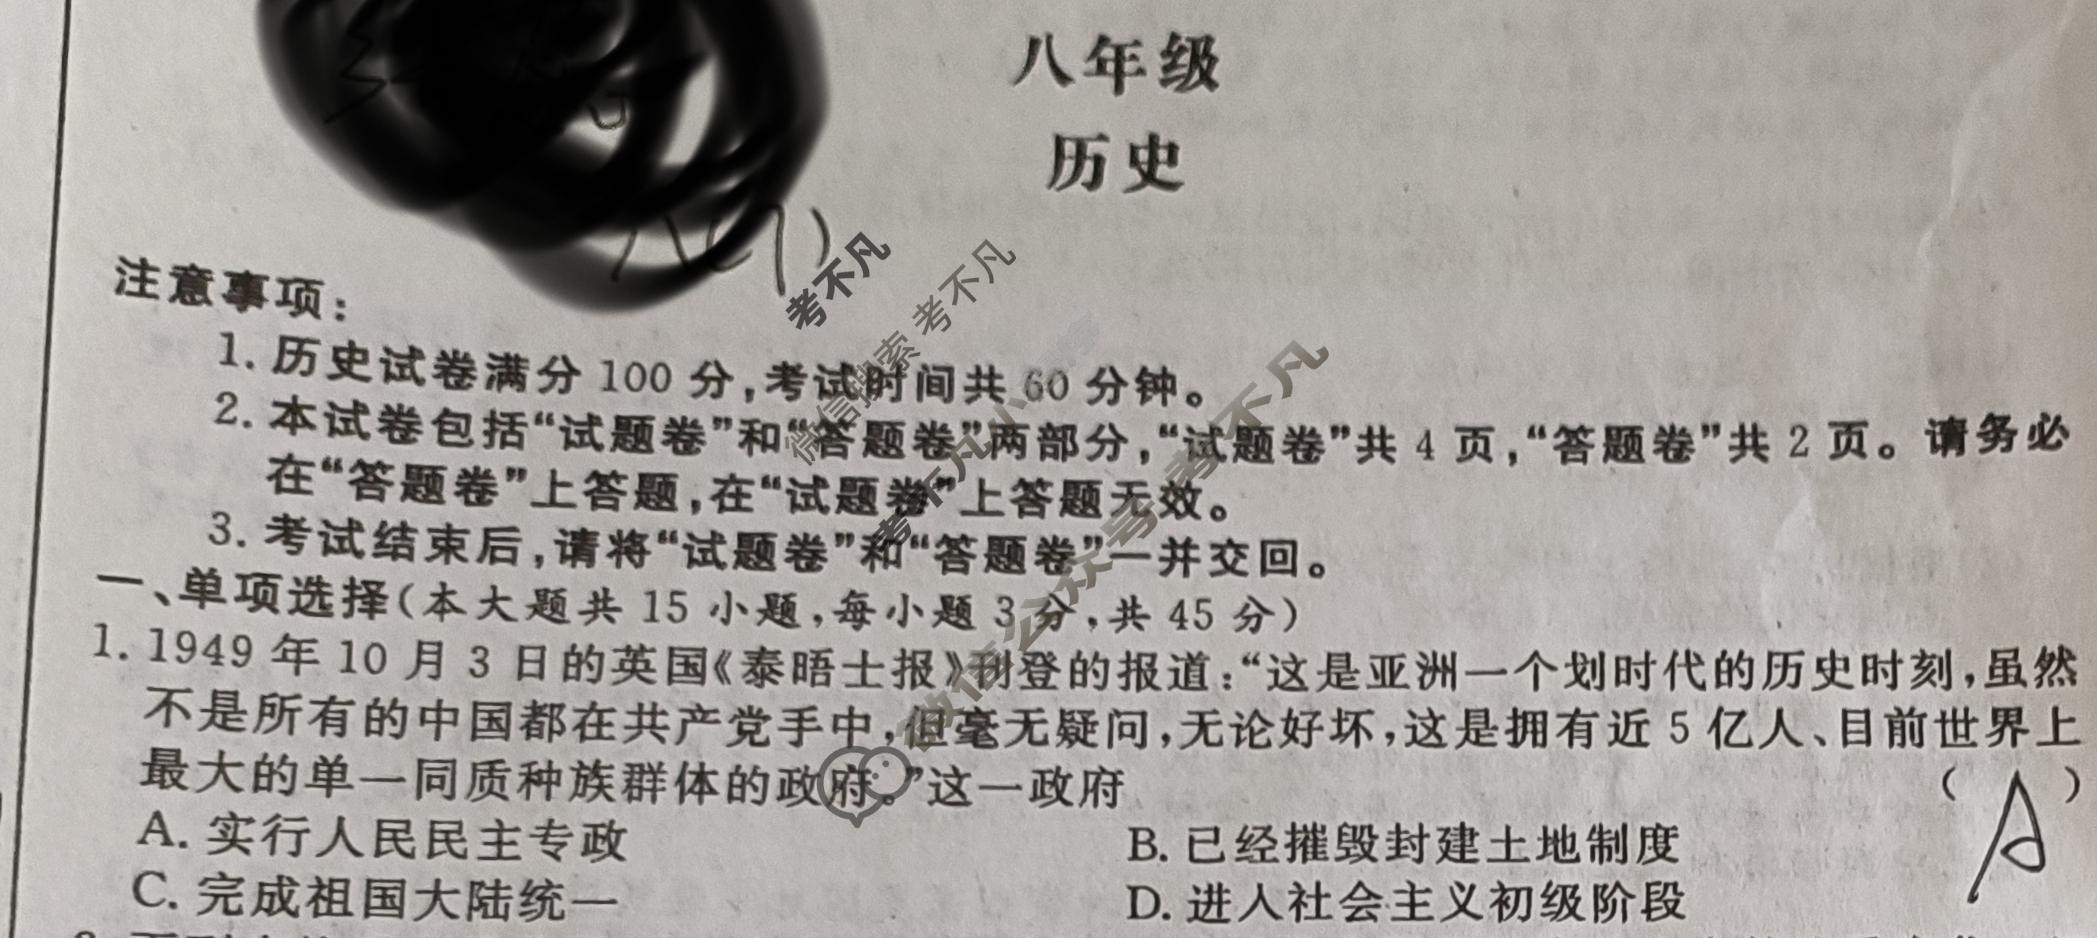 八年级
历史
注意事项：
1. 历史试卷满分 100 分，考试时间共 60 分钟。
2. 本试卷包括“试题卷”和“答题卷”两部分，“试题卷”共 4 页，“答题卷”共 2 页。请务必
在“答题卷”上答题，在“试题卷”上答题无效。
3. 考试结束后，请将“试题卷”和“答题卷”一并交回。
一、单项选择（本大题共 15 小题，每小题 3 分，共 45 分）
1. 1949 年 10 月 3 日的英国《泰晤士报》刊登的报道：“这是亚洲一个划时代的历史时刻，虽然
不是所有的中国都在共产党手中，但毫无疑问，无论好坏，这是拥有近 5 亿人、目前世界上
最大的单一同质种族群体的政府。”这一政府 （ A ）
A. 实行人民民主专政 B. 已经摧毁封建土地制度
C. 完成祖国大陆统一 D. 进入社会主义初级阶段
考不凡
微信搜索 考不凡
考不凡小
微信公众号 考不凡